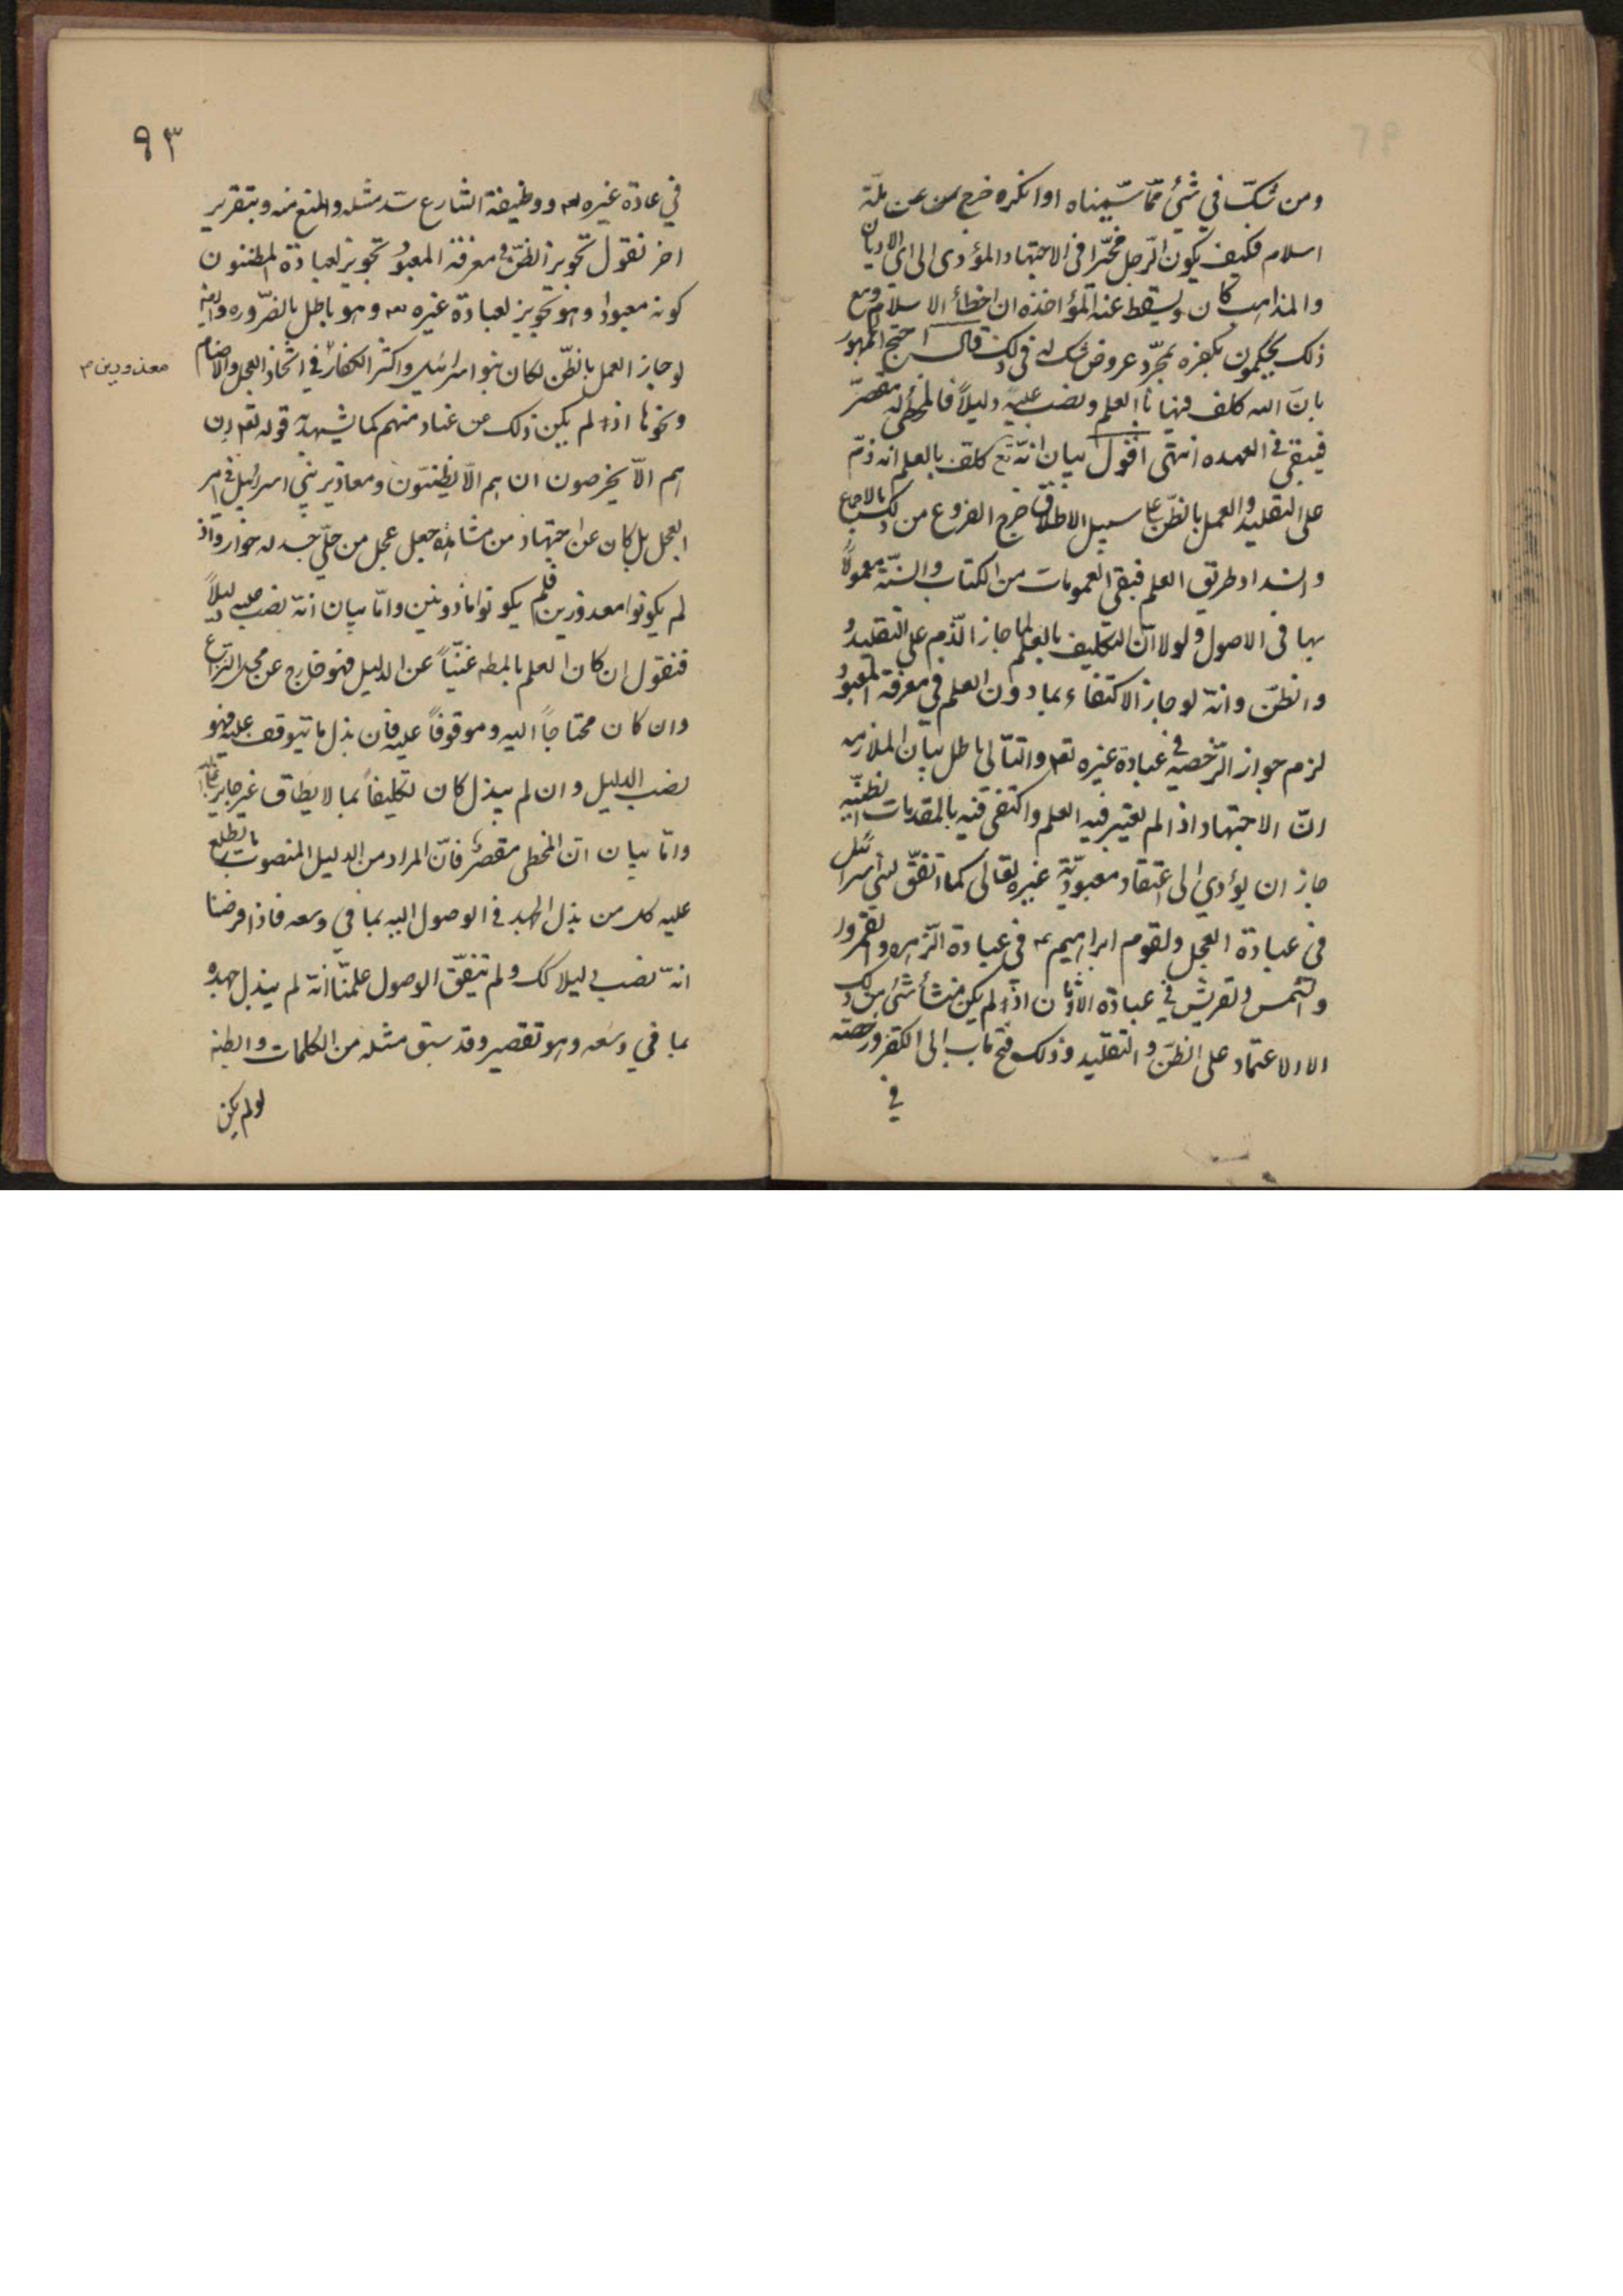 ومن شكّ في شئ ممّا سمّيناه او انكره خرج عن ملّة
اسلام فكيف يكون الرّجل مخيّرا فى الاجتهاد المؤدى الى اى الاديان
والمذاهب كان ويسقط عنه المؤاخذه ان اخطأ الاسلام ومع
ذلك يحكمون بكفره بمجرّد عروض شك له فى ذلك قال احتج الجمهور
بانّ الله كلف فيها بالعلم ونصب عليه دليلاً فالمخطى له مقصّر
فيبقى فى العهده انتهى اقول بيان انّه تع كلف بالعلم انه ذمّ
على التقليد والعمل بالظّن على سبيل الاطلاق خرج الفروع من ذلك بالاجماع
وانسداد طريق العلم فبقى العمومات من الكتاب والسنّة معمولاً
بها فى الاصول ولولا انّ التكليف بالعلم لما جاز الذّم على التقليد
والظنّ وانّه لو جاز الاكتفاء بما دون العلم فى معرفة المعبود
لزم جواز الرّخصه فى عبادة غيره تعم والتّالى باطل بيان الملازمه
انّ الاجتهاد اذا لم يعتبر فيه العلم واكتفى فيه بالمقدمات الظنّيه
جاز ان يؤدي الى اعتقاد معبوديّة غيره تعالى كما اتّفق لبنى اسرائيل
فى عبادة العجل ولقوم ابراهيم عه فى عبادة الزّهره والقمر
والشّمس ولقريش فى عبادة الاوثان اذ لم يكن منشأ شئ من ذلك
الا الاعتماد على الظّن والتقليد وذلك فتح باب الى الكفر ورخصته
في
٩٣
في عادة غيره تعه ووظيفة الشارع سدّ مثله والمنع منه وبتقرير
اخر نقول تجويز الظّنّ فى معرفة المعبود تجويز لعبادة المظنون
كونه معبودا وهو تجويز لعبادة غيره تعه وهو باطل بالضّروره وايضا
لو جاز العمل بالظّن لكان بنو اسرائيل واكثر الكفّار في اتخاذ العجل والاصنام
معذورين م
ونحوها اذ لم يكن ذلك عن عناد منهم كما يشهد به قوله تعم ان
هم الّا يخرصون ان هم الّا يظنّون ومعاذير بني اسرائيل فى امر
العجل بل كان عن اجتهاد من مشاهدة جعل عجل من حلّي جسد له خوار واذ
لم يكونوا معذورين فلم يكونوا ماذونين وامّا بيان انّه نصب عليه دليلاً
فنقول ان كان العلم بالمطه غنيّاً عن الدليل فهو خارج عن محل النزاع
وان كان محتاجاً اليه وموقوفاً عليه فان بذل ما يتوقف عليه فهو
نصب الدليل وان لم يبذل كان تكليفاً بما لا يطاق غير جايز عليه
وامّا بيان انّ المخطى مقصّر فانّ المراد من الدليل المنصوب ما يطلع
عليه كل من بذل الجهد فى الوصول اليه بما في وسعه فاذا فرضنا
انّه نصب دليلا كك ولم يتّفق الوصول علمنا انّه لم يبذل جهده
بما في وسعه وهو تقصير وقد سبق مثله من الكلمات والطنه
لو لم يكن